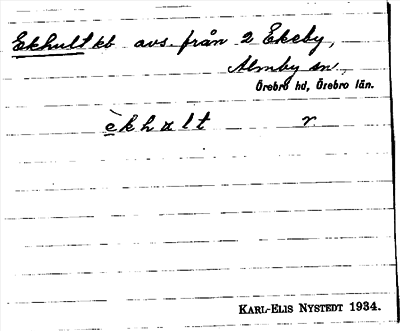 Ekhult kb avs. från 2 Ekeby,
Almby sn.,
Örebro hd, Örebro län.
èkhult r.
KARL-ELIS NYSTEDT 1934.